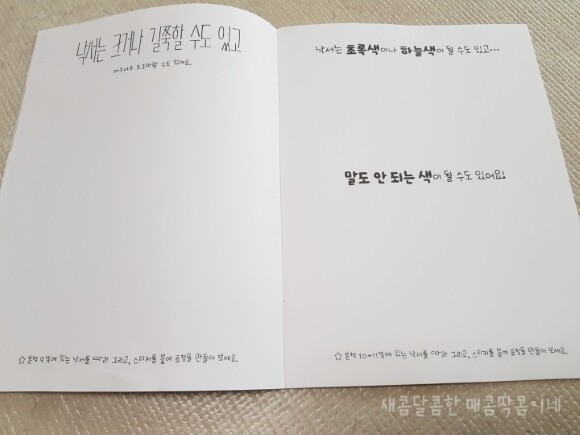 낙서는 크거나 길쭉할 수도 있고
아주아주 조그마할 수도 있어요.
☆ 본책 9쪽에 있는 낙서를 따라 그리고, 스티커를 붙여 표정을 만들어 보세요.
낙서는 초록색이나 하늘색이 될 수도 있고...
말도 안 되는 색이 될 수도 있어요!
☆ 본책 10~11쪽에 있는 낙서를 따라 그리고, 스티커를 붙여 표정을 만들어 보세요.
새콤달콤한 매콤딱콤이네